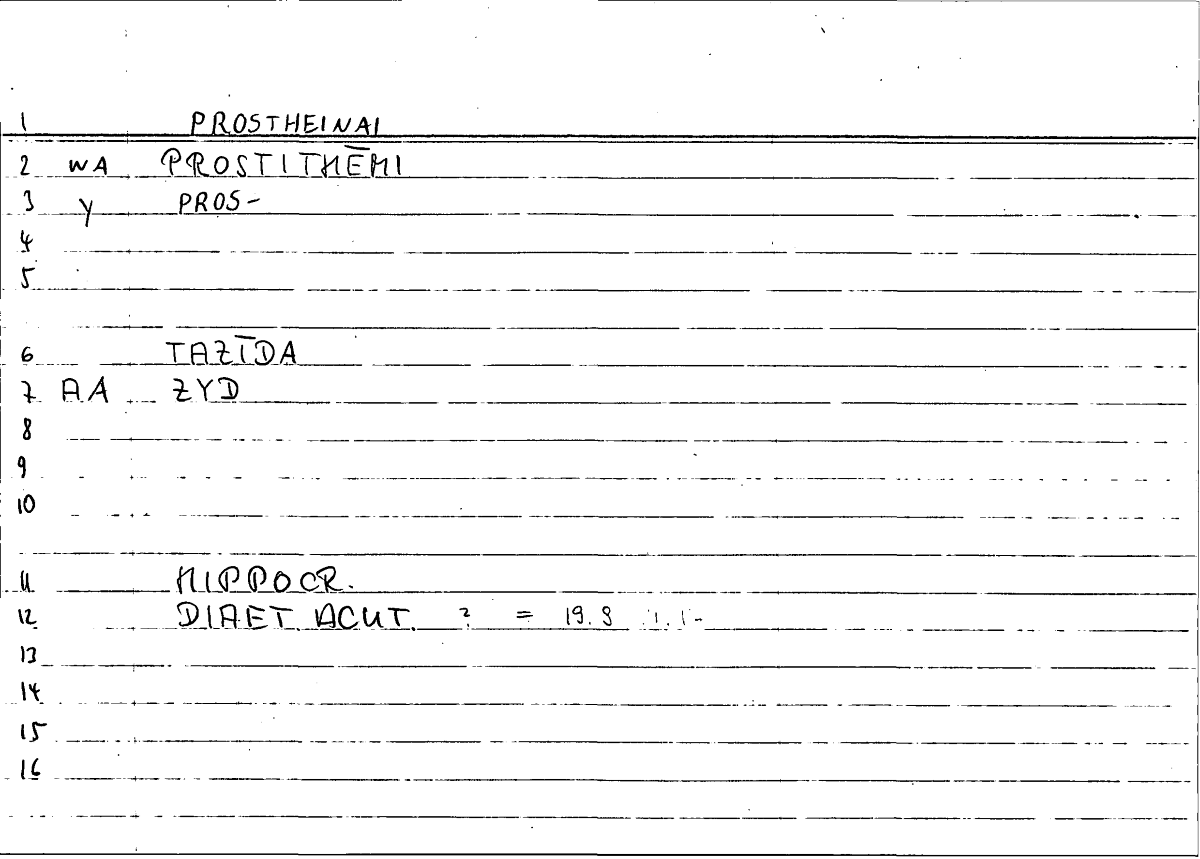 1 PROSTHEINAI
2 WA PROSTITHĒMI
3 Y PROS-
4
5
6 TAZĪDA
7 AA ZYD
8
9
10
11 HIPPOCR.
12 DIAET ACUT. ? = 19.8
13
14
15
16